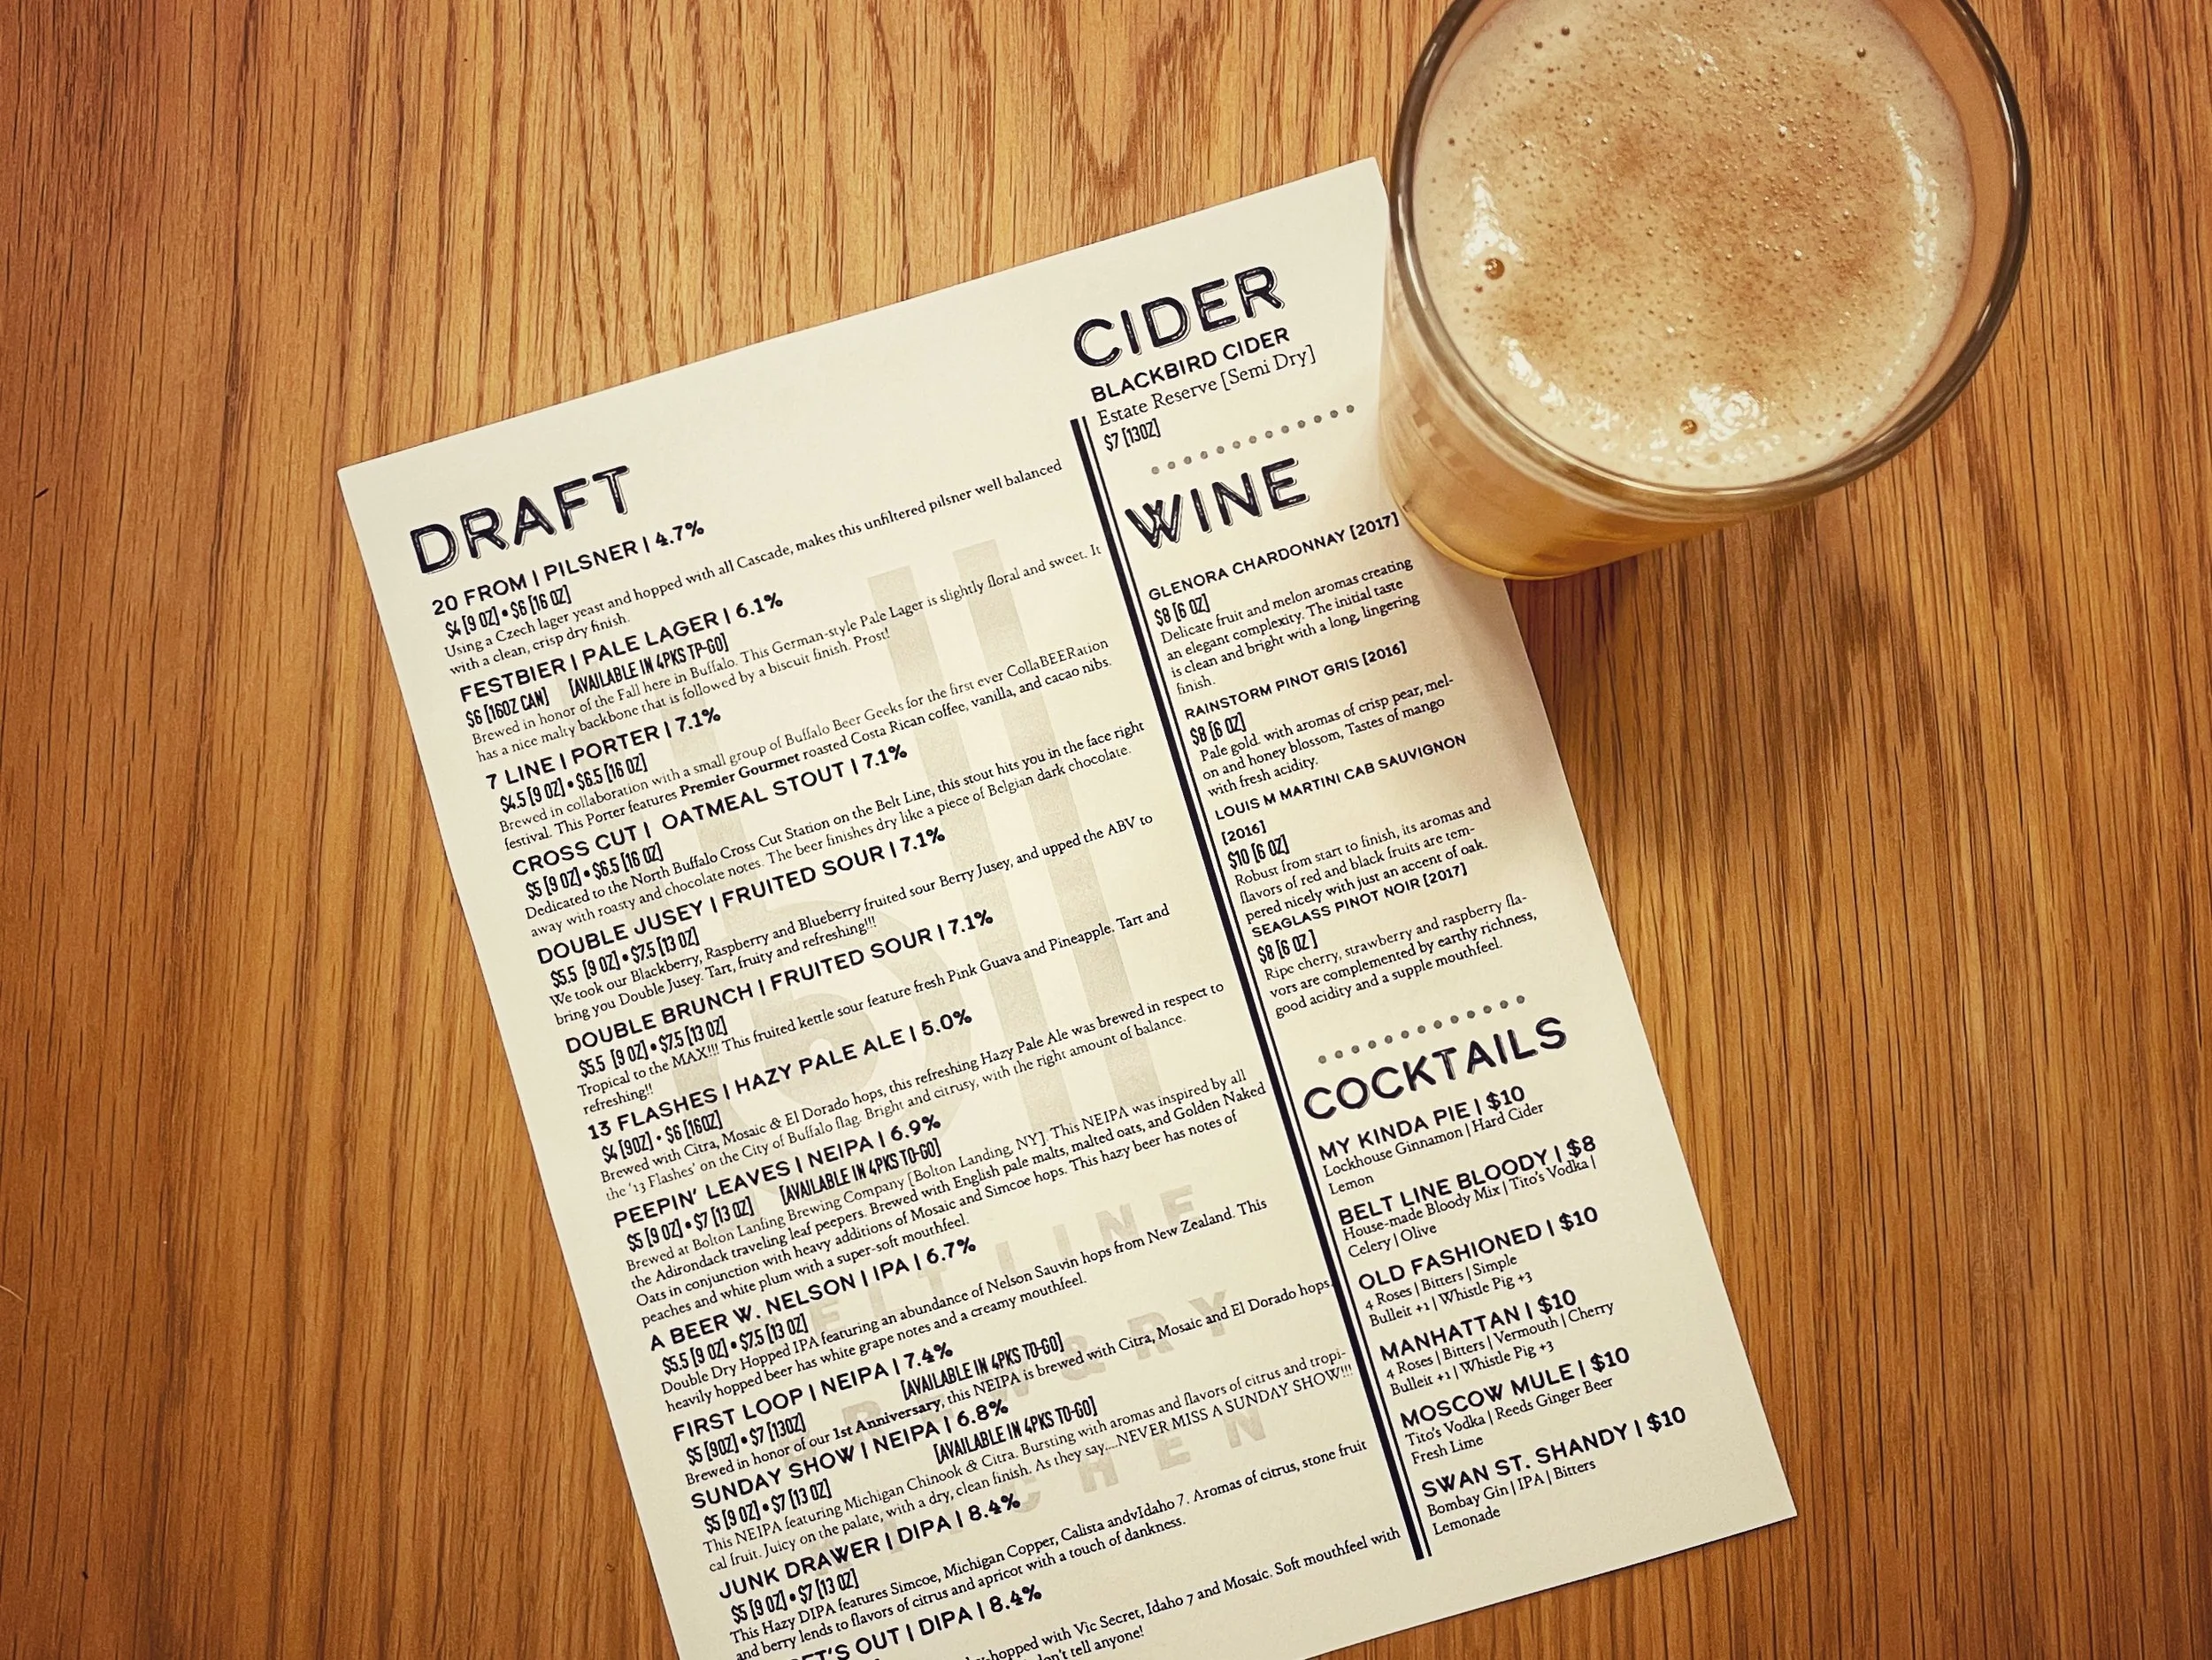 DRAFT
20 FROM | PILSNER | 4.7%
$4 [9 OZ] • $6 [16 OZ]
Using a Czech lager yeast and hopped with all Cascade, makes this unfiltered pilsner well balanced
with a clean, crisp dry finish.
FESTBIER | PALE LAGER | 6.1%
$6 [16OZ CAN] [AVAILABLE IN 4PKS TP-GO]
Brewed in honor of the Fall here in Buffalo. This German-style Pale Lager is slightly floral and sweet. It
has a nice malty backbone that is followed by a biscuit finish. Prost!
7 LINE | PORTER | 7.1%
$4.5 [9 OZ] • $6.5 [16 OZ]
Brewed in collaboration with a small group of Buffalo Beer Geeks for the first ever CollaBEERation
festival. This Porter features Premier Gourmet roasted Costa Rican coffee, vanilla, and cacao nibs.
CROSS CUT | OATMEAL STOUT | 7.1%
$5 [9 OZ] • $6.5 [16 OZ]
Dedicated to the North Buffalo Cross Cut Station on the Belt Line, this stout hits you in the face right
away with roasty and chocolate notes. The beer finishes dry like a piece of Belgian dark chocolate.
DOUBLE JUSEY | FRUITED SOUR | 7.1%
$5.5 [9 OZ] • $7.5 [13 OZ]
We took our Blackberry, Raspberry and Blueberry fruited sour Berry Jusey, and upped the ABV to
bring you Double Jusey. Tart, fruity and refreshing!!!
DOUBLE BRUNCH | FRUITED SOUR | 7.1%
$5.5 [9 OZ] • $7.5 [13 OZ]
Tropical to the MAX!!! This fruited kettle sour feature fresh Pink Guava and Pineapple. Tart and
refreshing!!
13 FLASHES | HAZY PALE ALE | 5.0%
$4 [9OZ] • $6 [16OZ]
Brewed with Citra, Mosaic & El Dorado hops, this refreshing Hazy Pale Ale was brewed in respect to
the '13 Flashes' on the City of Buffalo flag. Bright and citrusy, with the right amount of balance.
PEEPIN' LEAVES | NEIPA | 6.9%
$5 [9 OZ] • $7 [13 OZ] [AVAILABLE IN 4PKS TO-GO]
Brewed at Bolton Lanfing Brewing Company [Bolton Landing, NY]. This NEIPA was inspired by all
the Adirondack traveling leaf peepers. Brewed with English pale malts, malted oats, and Golden Naked
Oats in conjunction with heavy additions of Mosaic and Simcoe hops. This hazy beer has notes of
peaches and white plum with a super-soft mouthfeel.
A BEER W. NELSON | IPA | 6.7%
$5.5 [9 OZ] • $7.5 [13 OZ]
Double Dry Hopped IPA featuring an abundance of Nelson Sauvin hops from New Zealand. This
heavily hopped beer has white grape notes and a creamy mouthfeel.
FIRST LOOP | NEIPA | 7.4%
$5 [9OZ] • $7 [13OZ] [AVAILABLE IN 4PKS TO-GO]
Brewed in honor of our 1st Anniversary, this NEIPA is brewed with Citra, Mosaic and El Dorado hops.
SUNDAY SHOW | NEIPA | 6.8%
$5 [9 OZ] • $7 [13 OZ] [AVAILABLE IN 4PKS TO-GO]
This NEIPA featuring Michigan Chinook & Citra. Bursting with aromas and flavors of citrus and tropi-
cal fruit. Juicy on the palate, with a dry, clean finish. As they say....NEVER MISS A SUNDAY SHOW!!!
JUNK DRAWER | DIPA | 8.4%
$5 [9 OZ] • $7 [13 OZ]
This Hazy DIPA features Simcoe, Michigan Copper, Calista andvIdaho 7. Aromas of citrus, stone fruit
and berry lends to flavors of citrus and apricot with a touch of dankness.
OUT | DIPA | 8.4%
hopped with Vic Secret, Idaho 7 and Mosaic. Soft mouthfeel with
don't tell anyone!
CIDER
BLACKBIRD CIDER
Estate Reserve [Semi Dry]
$7 [13OZ]
WINE
GLENORA CHARDONNAY [2017]
$8 [6 OZ]
Delicate fruit and melon aromas creating
an elegant complexity. The initial taste
is clean and bright with a long, lingering
finish.
RAINSTORM PINOT GRIS [2016]
$8 [6 OZ]
Pale gold. with aromas of crisp pear, mel-
on and honey blossom, Tastes of mango
with fresh acidity.
LOUIS M MARTINI CAB SAUVIGNON
[2016]
$10 [6 OZ]
Robust from start to finish, its aromas and
flavors of red and black fruits are tem-
pered nicely with just an accent of oak.
SEAGLASS PINOT NOIR [2017]
$8 [6 OZ]
Ripe cherry, strawberry and raspberry fla-
vors are complemented by earthy richness,
good acidity and a supple mouthfeel.
COCKTAILS
MY KINDA PIE | $10
Lockhouse Ginnamon | Hard Cider
Lemon
BELT LINE BLOODY | $8
House-made Bloody Mix | Tito's Vodka |
Celery | Olive
OLD FASHIONED | $10
4 Roses | Bitters | Simple
Bulleit +1 | Whistle Pig +3
MANHATTAN | $10
4 Roses | Bitters | Vermouth | Cherry
Bulleit +1 | Whistle Pig +3
MOSCOW MULE | $10
Tito's Vodka | Reeds Ginger Beer
Fresh Lime
SWAN ST. SHANDY | $10
Bombay Gin | IPA | Bitters
Lemonade
bll
BELT LINE
BREW&RY
KITCHEN